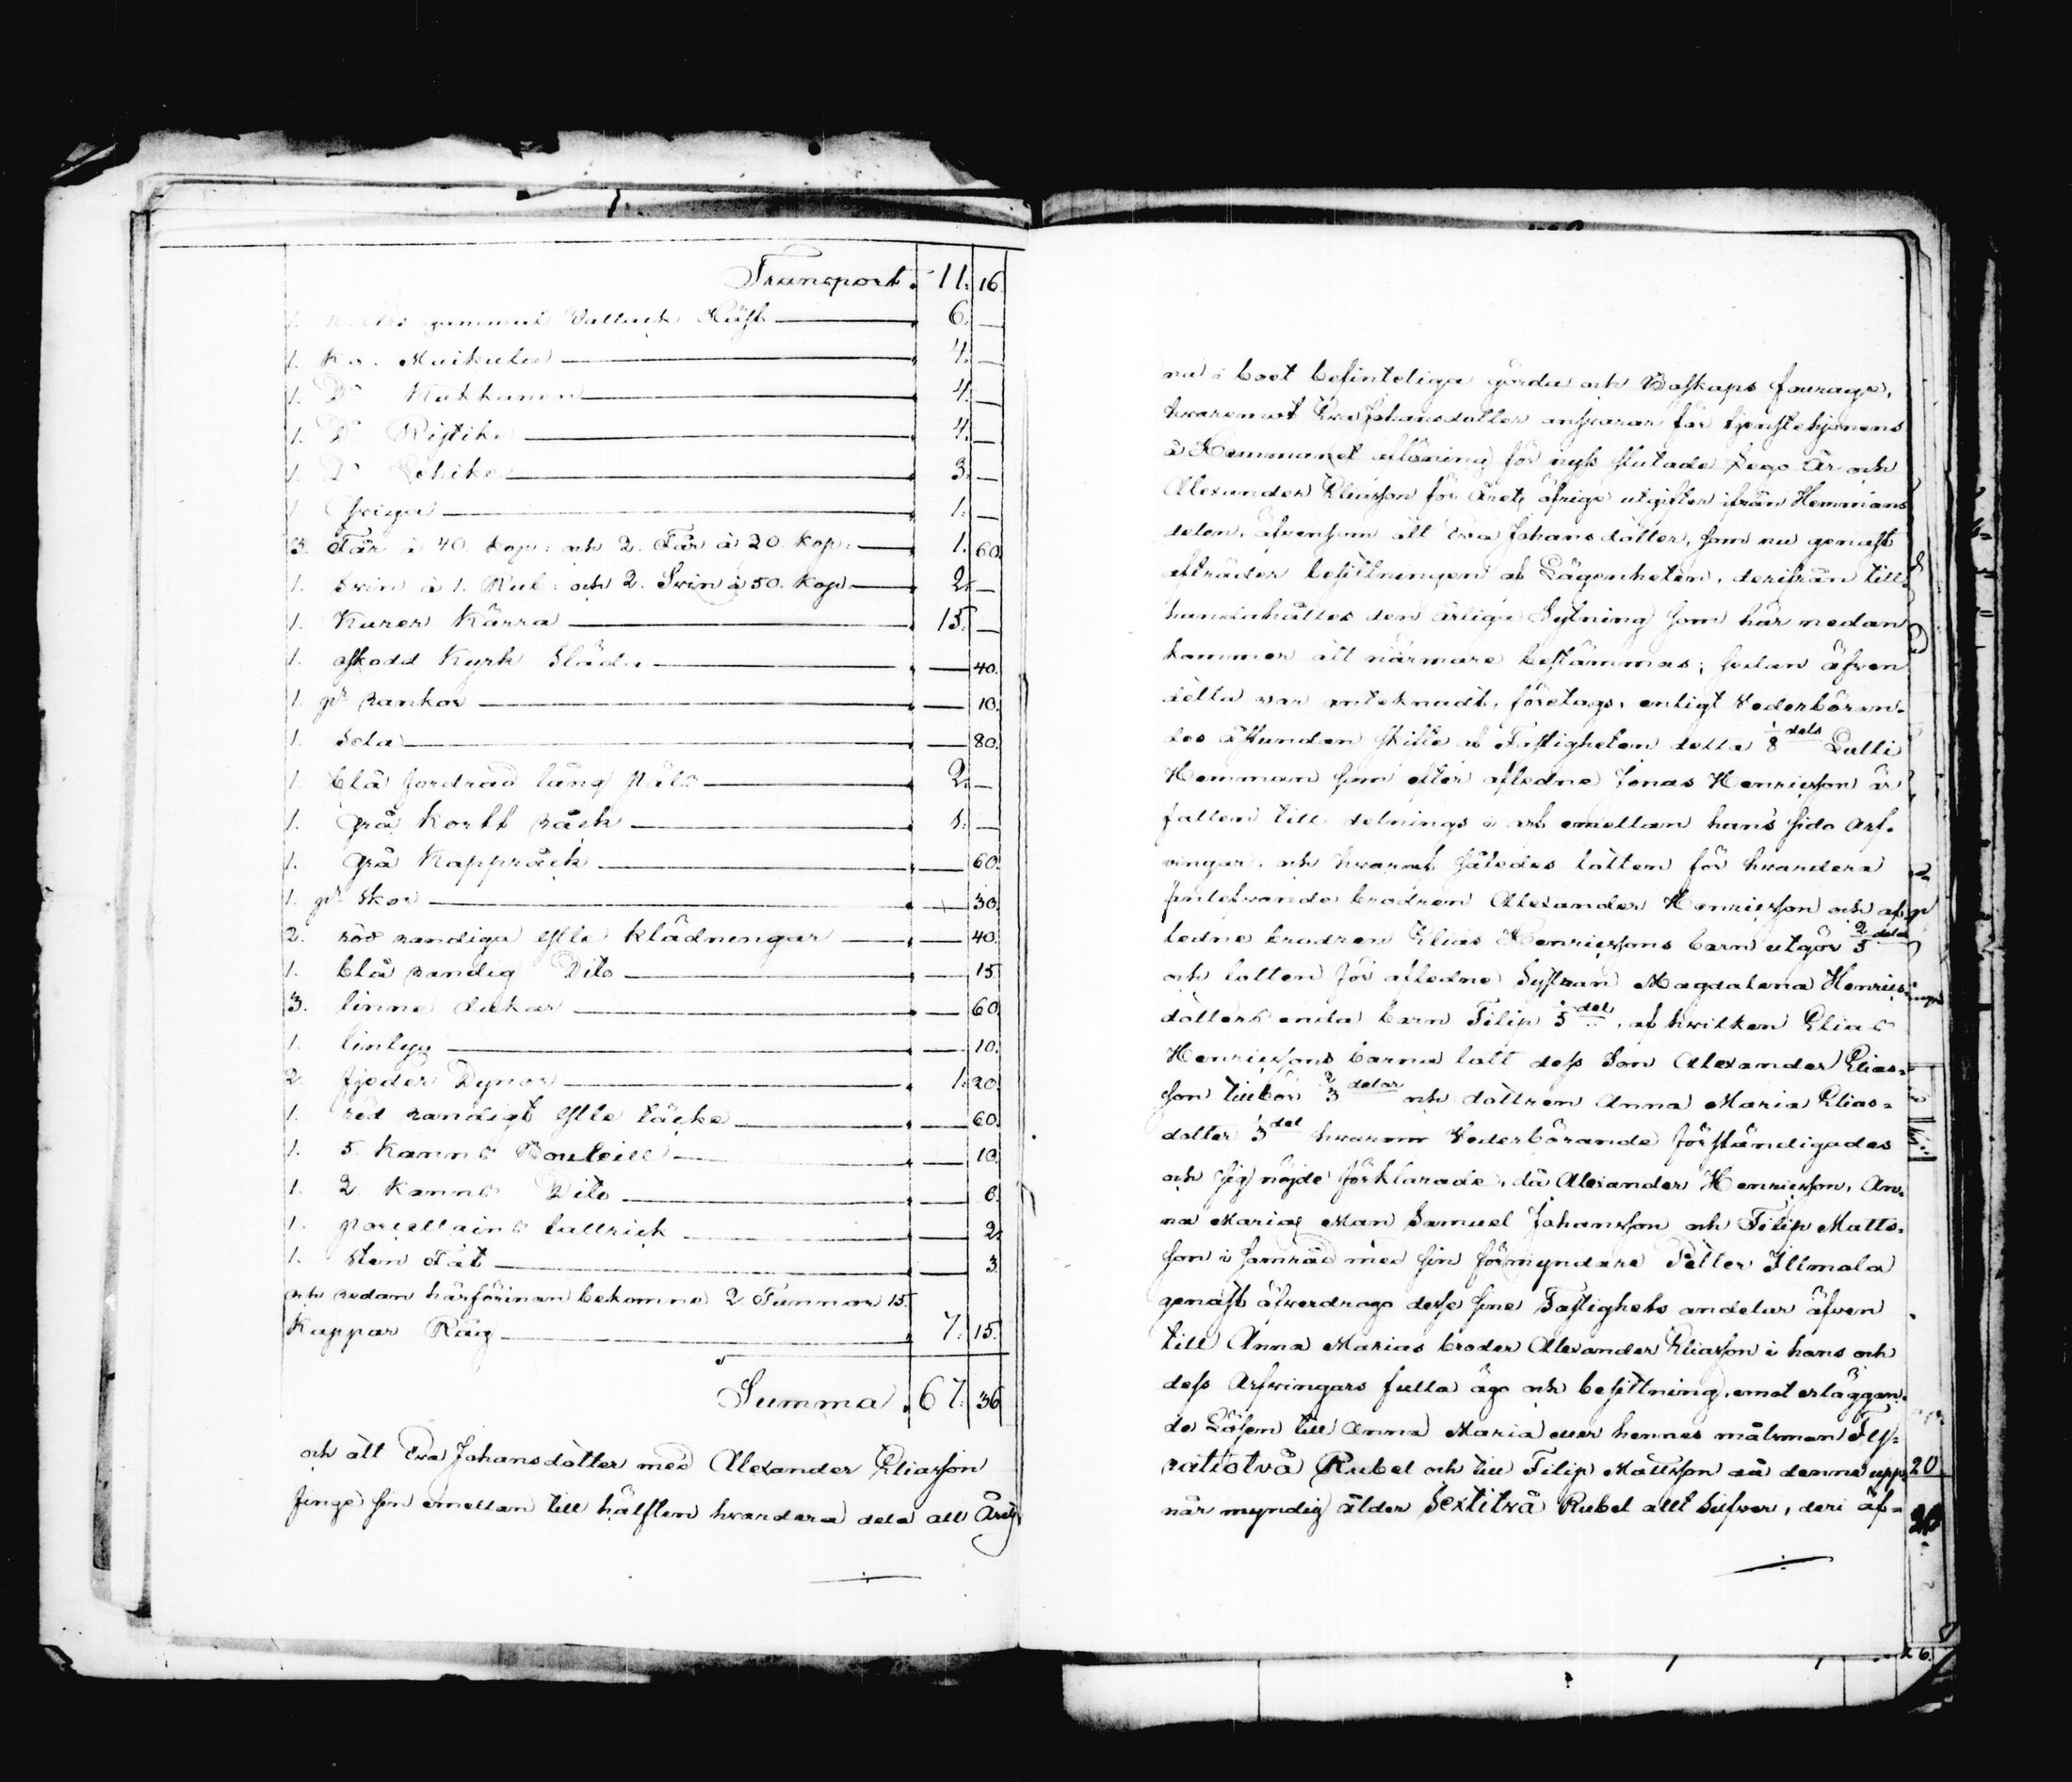 Transport. 11. 16.
1. års gammal Vallack Häst 6. —
1. Ko. Maikula 4. —
1. D:o Kukkanen 4. —
1. D:o Ristike 4. —
1. D:o Lehike 3. —
1. qviga 1. —
3. Får à 40. kop: och 2. Får à 20. kop: 1. 60.
1. Svin à 1. Rub: och 2. Svin à 50. kop 2. —
1. Kurer Kärra 15. —
1. oskodd Kyrk Släda — 40.
1. pr rankor — 10.
1. Sela — 80.
1. blå fordrad lång päls 2. —
1. Grå kortt råck 1. —
1. Grå Kappråck — 60.
1. pr Skor — 30.
2. röd randiga ylle klädningar — 40.
1. blå randig Dito — 15
3. linne dukar — 60
1. lintyg — 10.
2. fjeder Dynor 1. 20.
1. röd randigt ylle täcke — 60.
1. 5. kanns Bouteill — 10.
1. 2. kanns Dito — 6.
1. porcellains tallrick — 2.
1. Sten Fat — 3.
och redan härförinnan bekomne 2. Tunnor 15.
Kappar Råg 7. 15.
Summa. 67. 36
och att Eva Johansdotter med Alexander Eliasson
finge sin emellan till hälften hvardera dela all Årets
nu i boet befinteliga gröda och Boskaps fourage,
hvaremot Eva Johansdotter ansvarar för tjenstehjonens
å Hemmanet aflöning för nyss slutade Lego År och
Alexander Eliasson för Årets öfrige utgifter ifrån Hemmans
delen, äfvensom att Eva Johansdotter, som nu genast
afträder besittningen af Lägenheten, derifrån till
handahålles den årliga Sytning som här nedan
kommer att närmare bestämmas; sedan äfven
detta var anteknadt, företogs, enligt Vederböran-
des åstundan skifte af Fastigheten detta 1/8 dels Lulli
Hemman som efter aflidne Jonas Henricsson är
fallen till delnings i arf emellan hans sido Arf-
vingar. och hvaraf således lotten för hvardera
qvarlefvande brodren Alexander Henricsson och af-
ledne brodren Elias Henricssons barn utgör 2/5 delar
och lotten för afledne Systran Magdalena Henrics-
dotters enda barn Filip 1/5 del, af hvilken Elias
Henricssons barna lott dess Son Alexander Elias-
son tillkom 2/3 delar och dottren Anna Maria Elias-
dotter 1/3 del hvarom Vederbörande förständigades
och sig nöjde förklarade, då Alexander Henricsson, An-
na Marias Man Samuel Johansson och Filip Matts-
son i samråd med sin förmyndare Petter Ilmola
genast öfverdrogo desse sine Fastighets andelar äfven
till Anna Marias broder Alexander Eliasson i hans och
dess Arfvingars fulla ägo och besittning, emot erläggan-
de Lösen till Anna Maria eller hennes målsman Fy-
ratiotvå Rubel och till Filip Mattsson då denne upp-
når myndig ålder Sextitvå Rubel allt Silfver, deri äf-
20